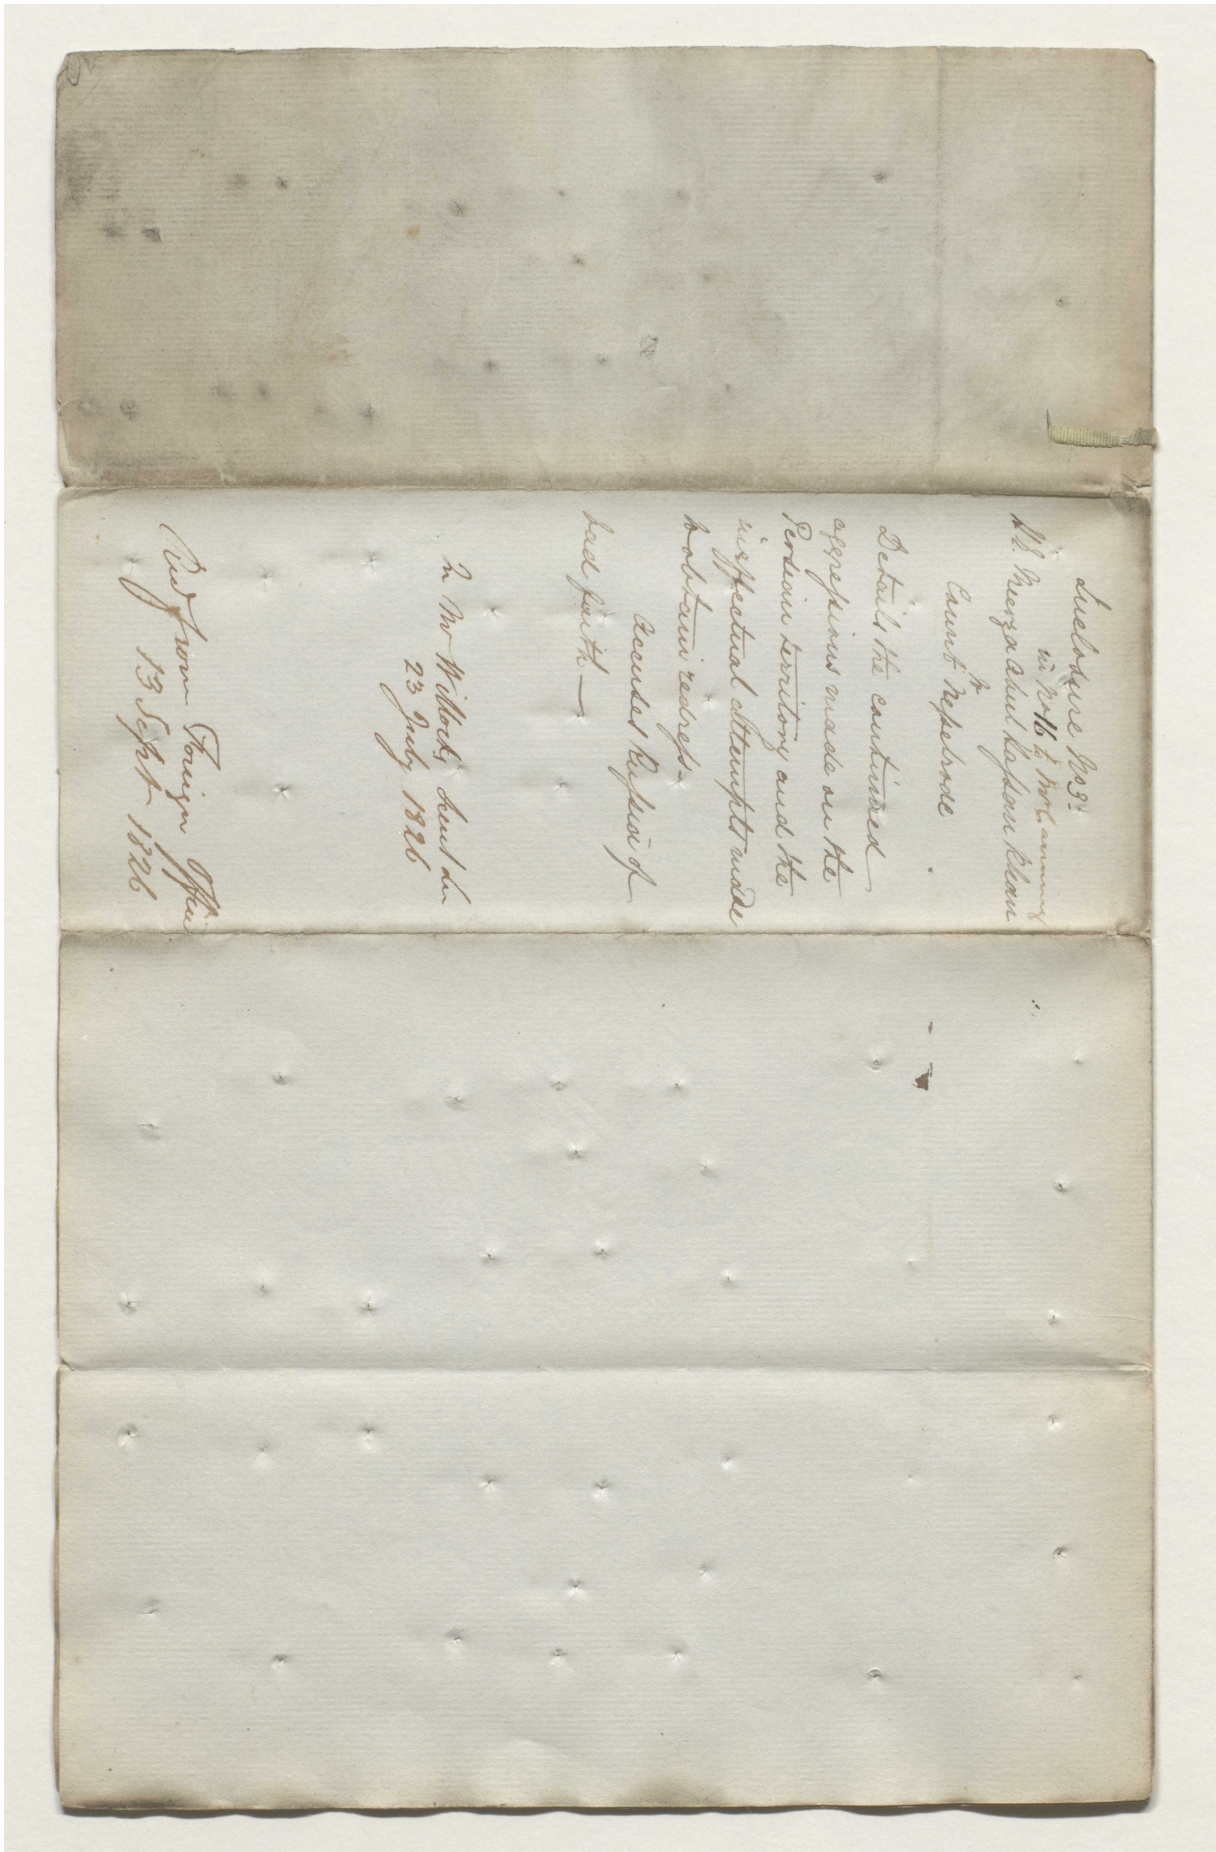 Enclosure No 3.
in No 16 to Mr Canning
Mirza Abul Hassan Khan
to
Count Nesselrode
Details the continued
aggressions made on the
Persian territory and the
ineffectual attempts made
to obtain redress.
Accuses Russia of
bad faith —
In Mr Willock's Secret Lr
23 July 1826
Recd from Foreign Office
13 Sept 1826